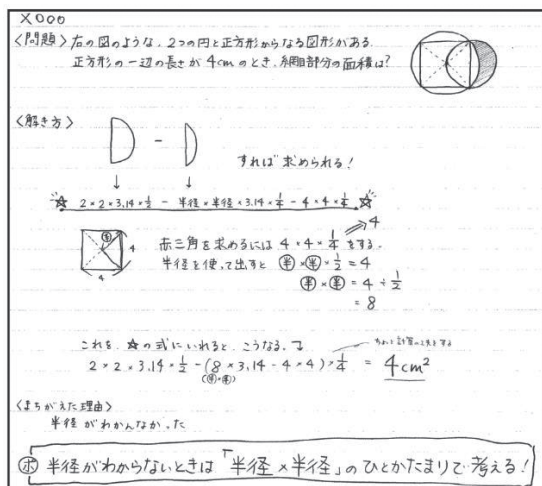 X000
〈問題〉右の図のような、2つの円と正方形からなる図形がある.
正方形の一辺の長さが 4cmのとき、網目部分の面積は?
〈解き方〉
すれば 求められる!
☆ 2×2×3.14×1/2 - 半径×半径×3.14×1/4 - 4×4×1/4 ☆
半
4
4
赤三角を求めるには 4×4×1/4 をする. ⇒ 4
半径を使って出すと 半×半×1/2 = 4
半×半 = 4÷1/2
= 8
これを、★の式にいれると、こうなる.
ちょっと計算の工夫をする
2×2×3.14×1/2 - (8×3.14 - 4×4)×1/4 = 4cm²
(半×半)
〈まちがえた理由〉
半径がわかんなかった
ポ 半径がわからないときは「半径×半径」のひとかたまりで考える!